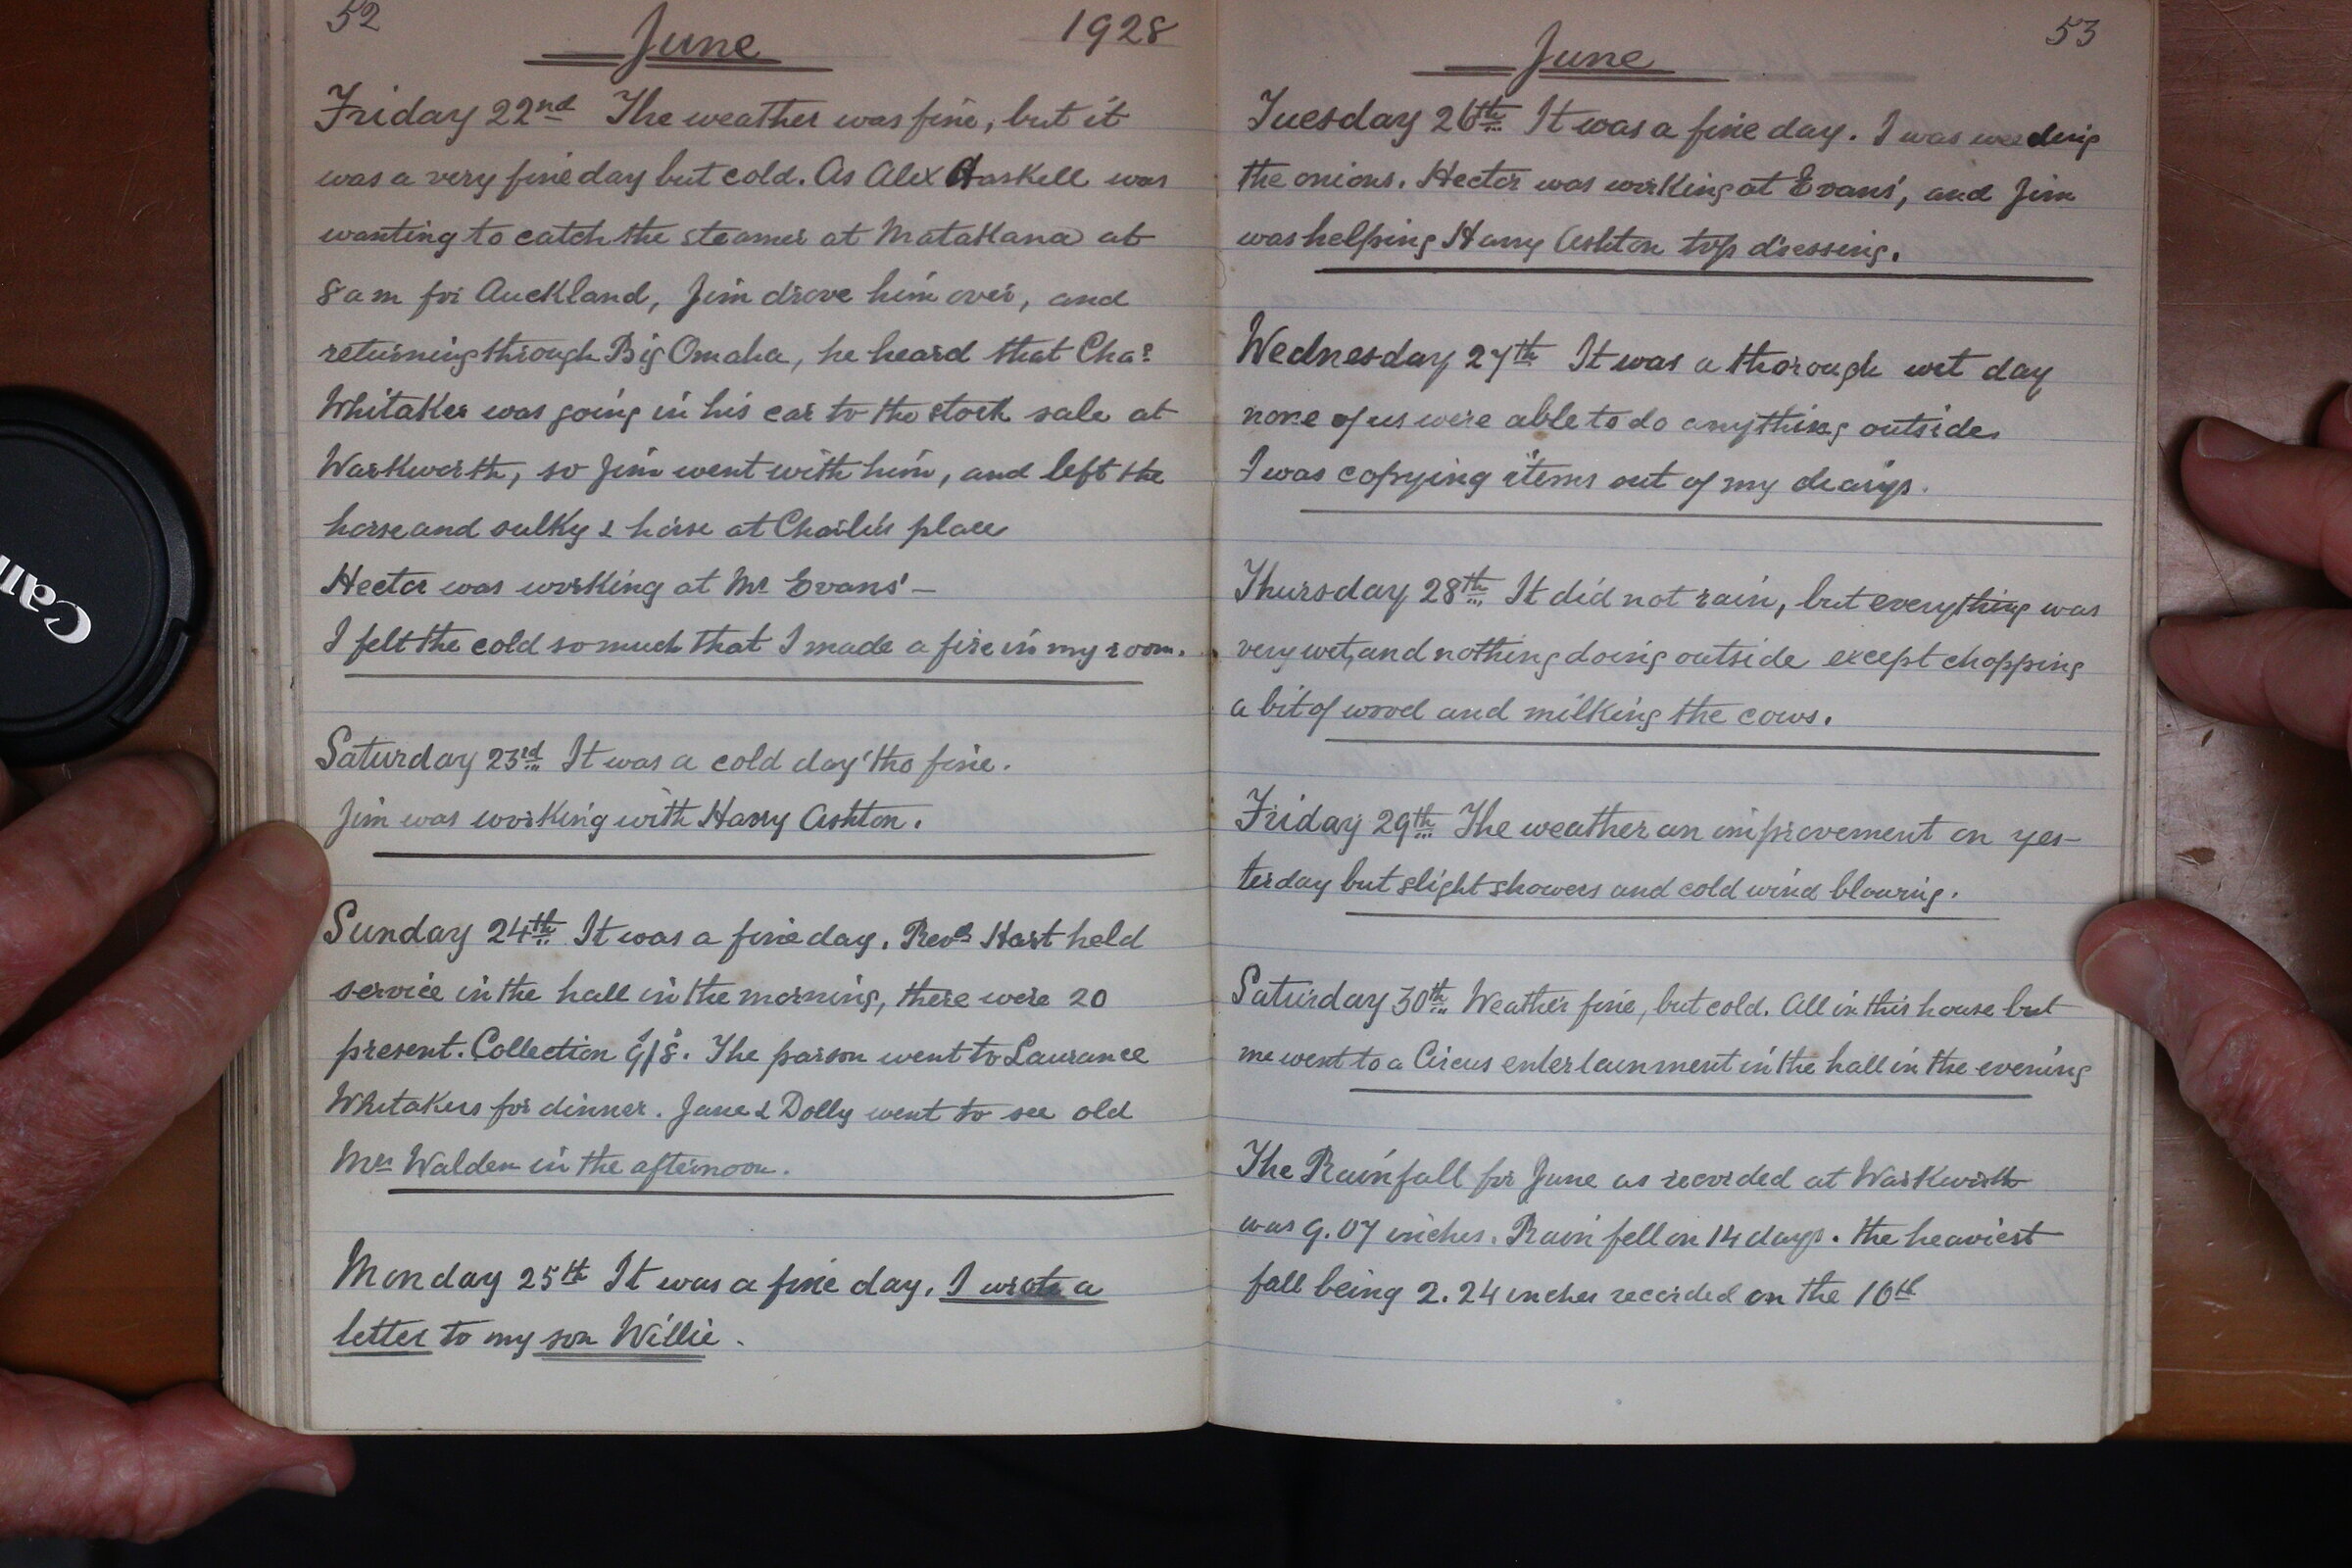 52
June
1928
Friday 22nd The weather was fine, but it
was a very fine day but cold. As Alex Haskell was
wanting to catch the steamer at Matakana at
8 am for Auckland, Jim drove him over, and
returning through Big Omaha, he heard that Chas
Whitaker was going in his car to the stock sale at
Warkworth, so Jim went with him, and left the
horse and sulky & horse at Charlie's place
Hector was working at Mr Evans' –
I felt the cold so much that I made a fire in my room.
Saturday 23rd It was a cold day 'tho fine.
Jim was working with Harry Ashton.
Sunday 24th It was a fine day. Revd Hart held
service in the hall in the morning, there were 20
present. Collection 9/8. The parson went to Laurance
Whitakers for dinner. Jane & Dolly went to see old
Mrs Walden in the afternoon.
Monday 25th It was a fine day. I wrote a
letter to my son Willie.
53
June
Tuesday 26th It was a fine day. I was weeding
the onions. Hector was working at Evans', and Jim
was helping Harry Ashton top dressing.
Wednesday 27th It was a thorough wet day
none of us were able to do anything outside.
I was copying items out of my diarys.
Thursday 28th It did not rain, but everything was
very wet, and nothing doing outside except chopping
a bit of wood and milking the cows.
Friday 29th The weather an improvement on yes-
terday but slight showers and cold wind blowing.
Saturday 30th Weather fine, but cold. All in this house but
me went to a Circus entertainment in the hall in the evening
The Rainfall for June as recorded at Warkworth
was 9.07 inches. Rain fell on 14 days. the heaviest
fall being 2.24 inches recorded on the 10th
Can